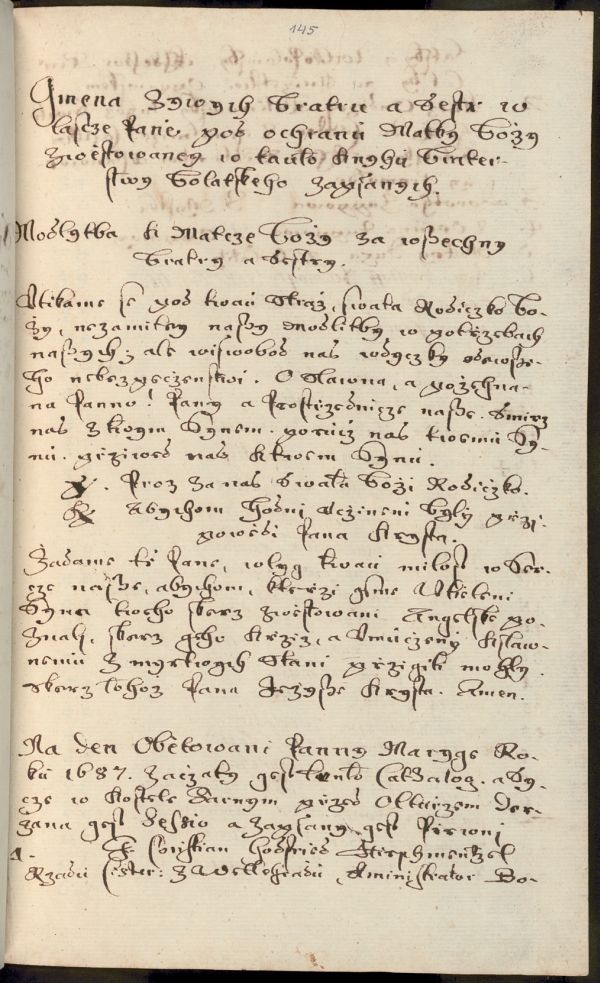 145
Gmena Zywych Bratru a Sestr w
lascze Panie pod ochranu Matky Bozy
zwestowaney w tauto Knyhu Brater-
stwy Bolatskeho Zapsanych.
Modlytba k Matcze Bozy za wssechny
Bratry a Sestry.
Utikame se pod twau Straz, swata Rodiczko Bo-
zy, nezamitey nassy modlitby w potrzebach
nassych, ale wiswobod nas wdyczky odewsse-
ho nebezpeczenstwi. O Slawna, a pozehna-
na Panno! Pany a Prostrzednicze nasse. Smirz
nas z twym Synem. poruczi nas twemu Sy-
nu. przived nas k twem Synu.
℣. Proz za nas Swata Bozi Rodiczko.
℟ Abychom hodni uczineni byly przi-
powedi Pana Krysta.
Zadame tě Pane, wlyg twau milost w Ser-
cze nasse, abychom, kterzi gsme Wtieleni
Syna tweho skerz zwestowani Angelske po-
znaly, skerz geho Krziz, a Umuczeny k slaw-
nemu Z mrtwych Stani przigiti mohly.
Skerz tehoz Pana Gezysse Krysta. Amen.
Na den Obětowani Panny Maryge Ro-
ku 1687. zaczaty gest tento Cathalog. a Sy-
cze w Kostele Farnym przed Oltarzem der-
zana gest Sessio a zapsany gest Pirwni
1. P. Christian Godfried Hirschmentzel
Rzadu Cister: z Wellehradu, Aministrator Bo-